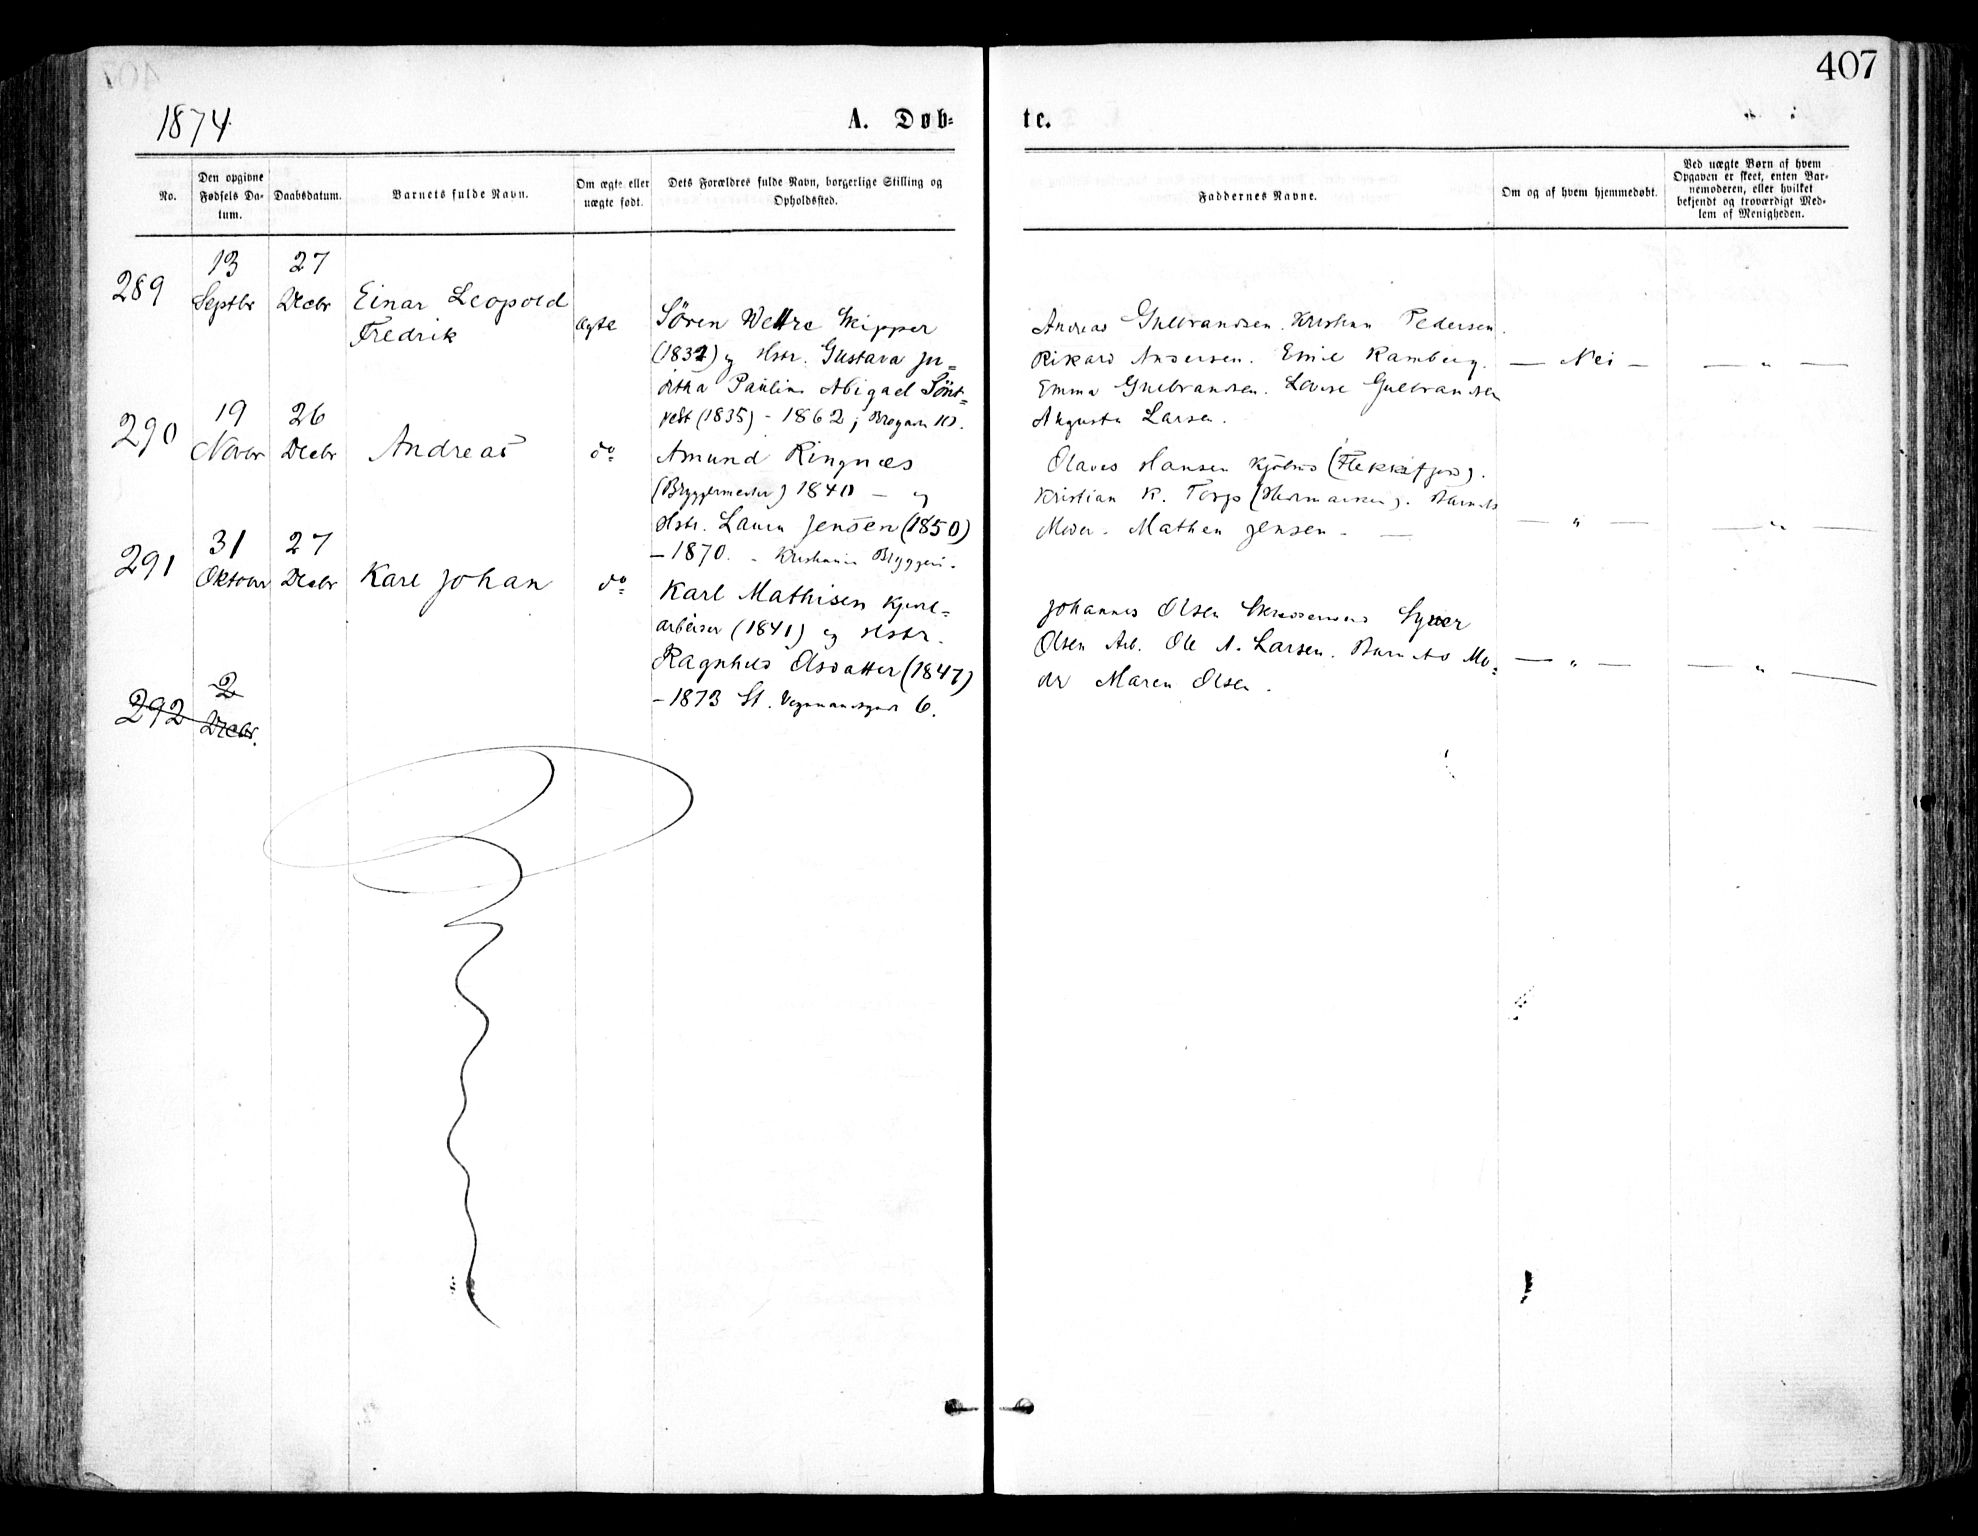 407
1874
A. Døb-
te.
No.
Den opgivne
Fødsels Da-
tum.
Daabsdatum.
Barnets fulde Navn.
Om ægte eller
uægte født.
Dets Forældres fulde Navn, borgerlige Stilling og
Opholdssted.
Faddernes Navne.
Om og af hvem hjemmedøbt.
Ved uægte Børn af hvem
Opgaven er skeet, enten Bar-
nemoderen, eller hvilket
bekjendt og troværdigt Med-
lem of Menigheden.
289
13
Septbr
27
Decbr
Einar Leopold
Fredrik
ægte
Søren Wettre Skipper
(1832) og Hstr. Gustava Ju-
ditha Paulin Abigael Sönt-
vedt (1835) - 1862;
Andreas Gulbrandsen. Kristian Pedersen.
Rikard Andersen. Emil Ramberg.
Emma Gulbrandsen. Lovise Gulbrandsen
Augusta Larsen.
— Nei —
— „ —
290
19
Novbr
26
Decbr
Andreas
do
Amund Ringnæs
(Bryggermester) 1840 — og
Hstr. Laura Jensen (1850)
— 1870. - Kristiania Bryggeri.
Olaves Hansen (Flekkefjord).
Kristian K. Torp Barnets
Moder. Mathea Jensen. —
— „ —
— „ —
291
31
Oktober
27
Decbr
Karl Johan
do
Karl Mathisen
arbeider (1841) og Hstr.
Ragnhild Olsdatter (1847)
- 1873 St. 6.
Johannes Olsen Syver
Olsen Arb. Ole A. Larsen. Barnets Mo-
der Maren Olsen.
— „ —
— „ —
292
2
Decbr.